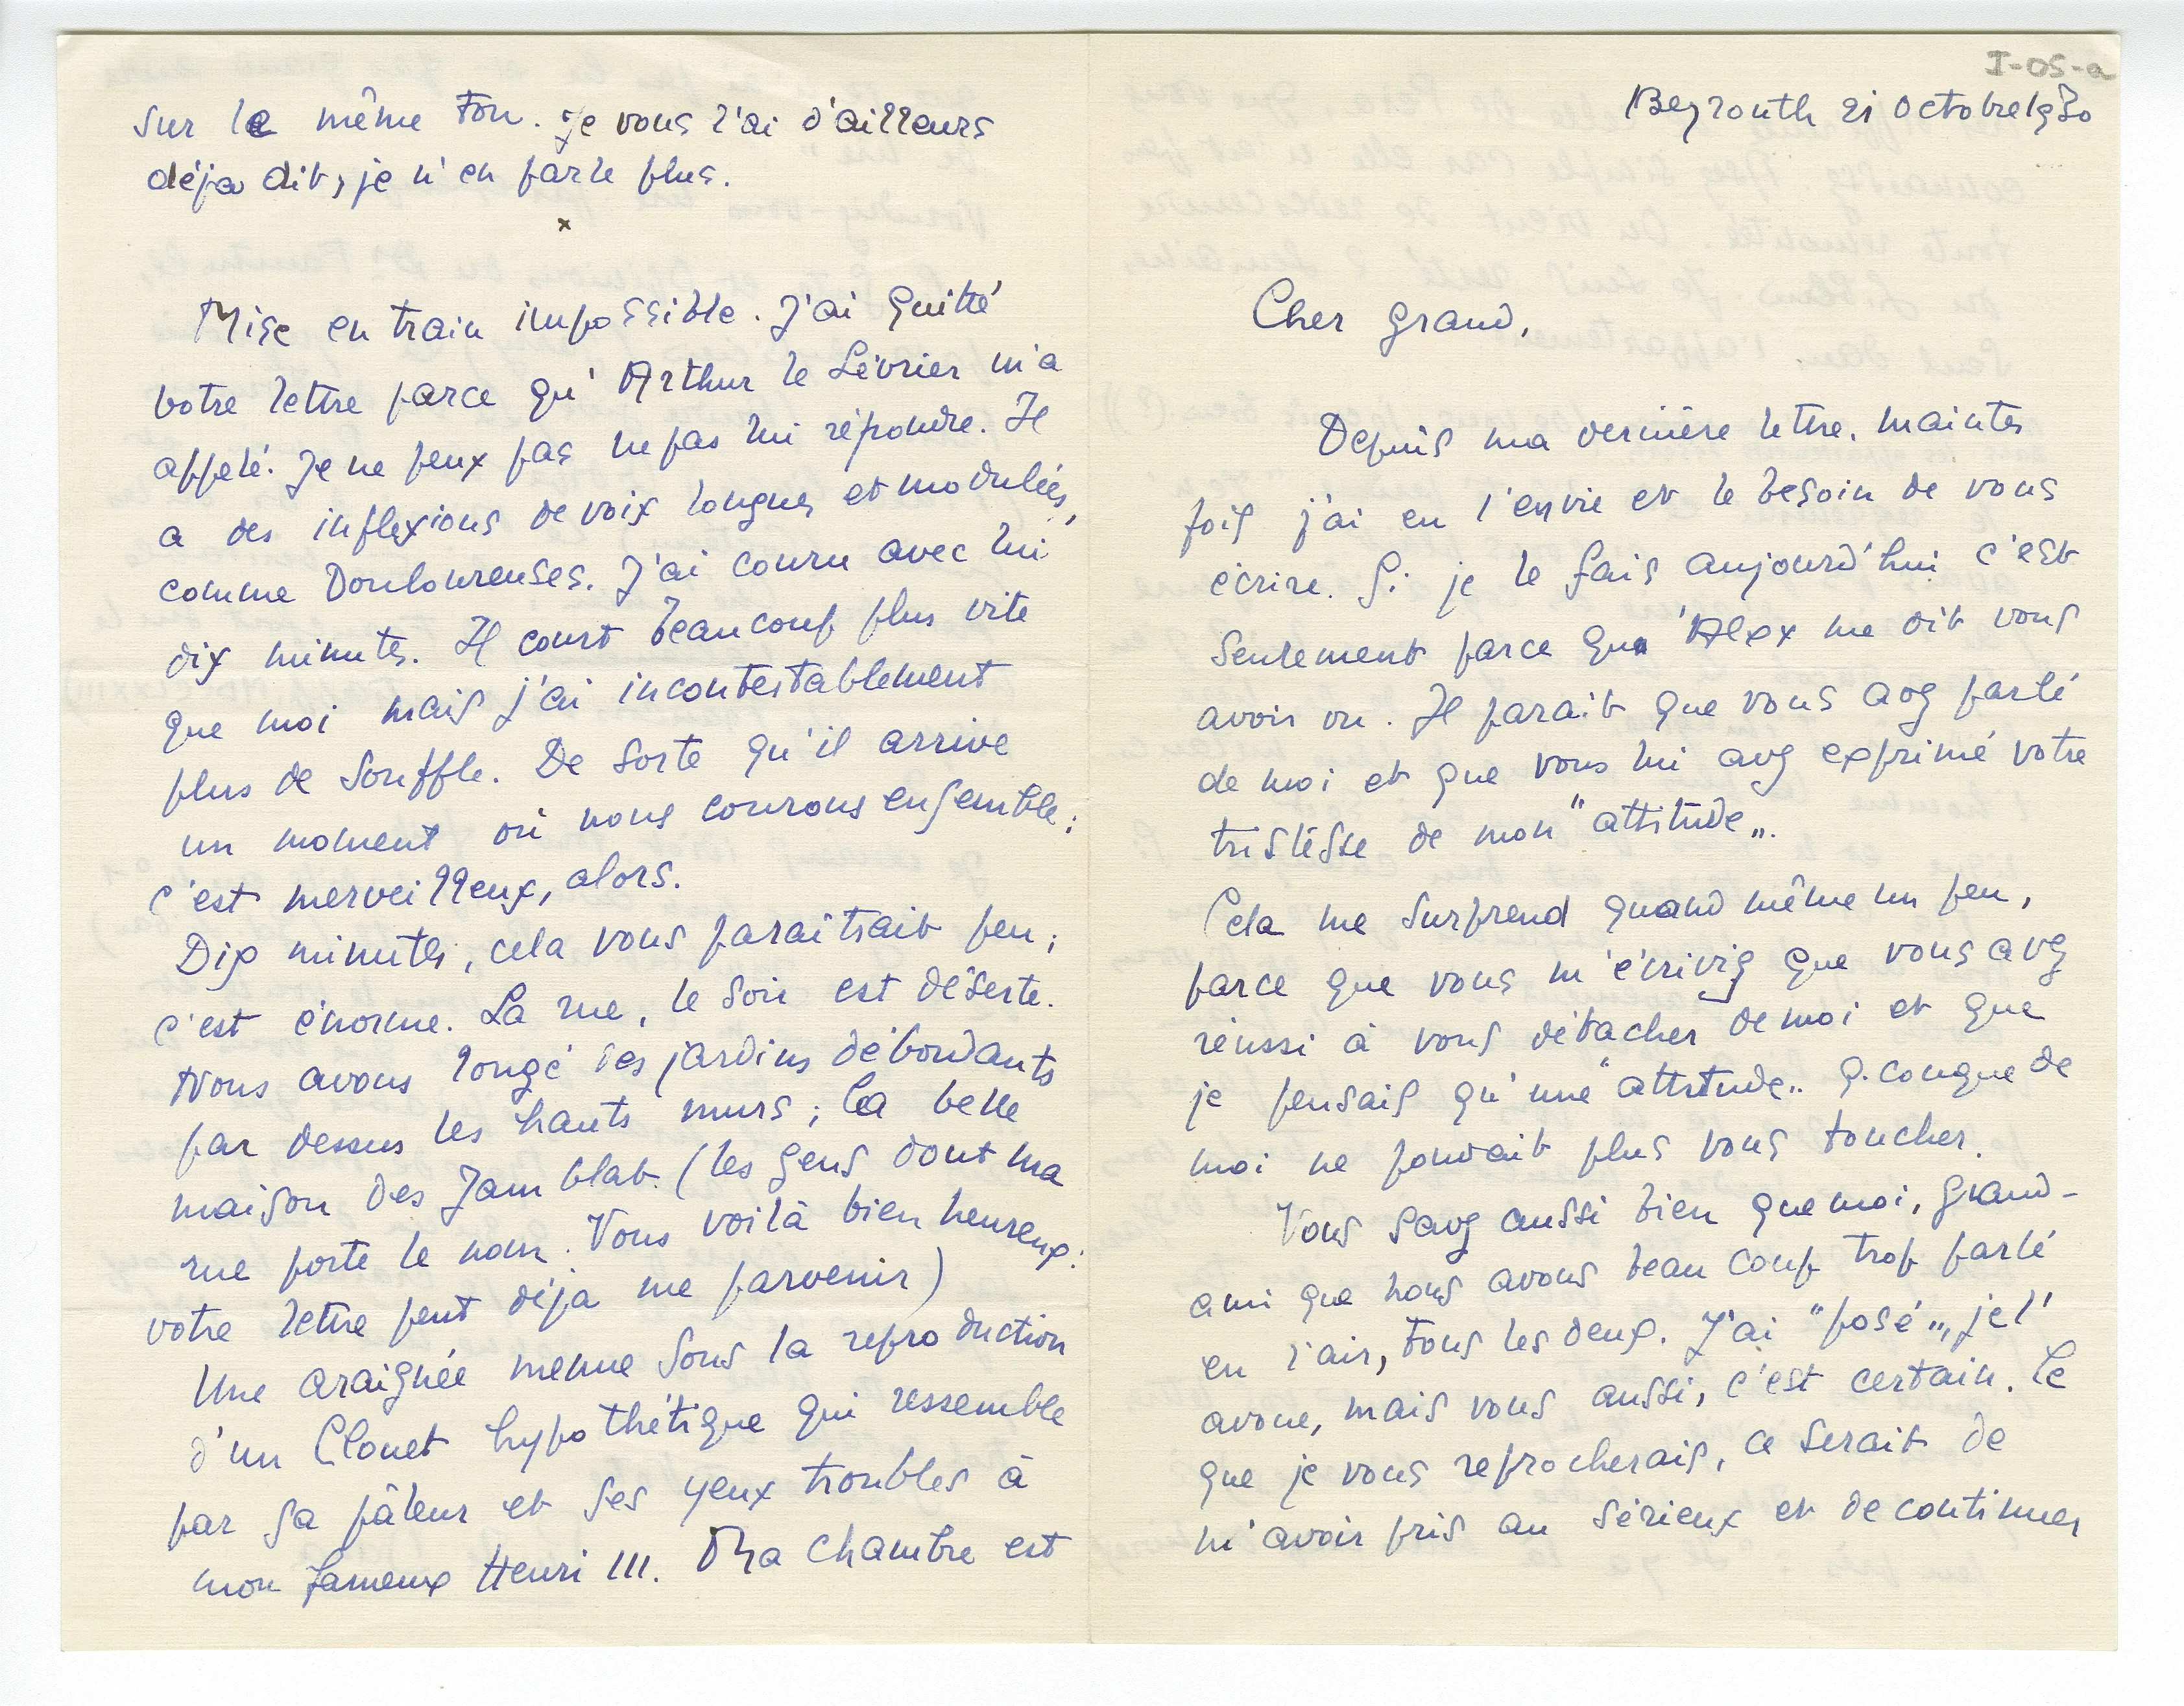 I-05-a
Beyrouth 21 octobre 1930
Cher grand,
Depuis ma dernière lettre, maintes
fois j'ai eu l'envie et le besoin de vous
écrire. Si je le fais aujourd'hui c'est
seulement parce que Alex me dit vous
avoir vu. Il parait que vous avez parlé
de moi et que vous lui avez exprimé votre
tristesse de mon "attitude".
Cela me surprend quand même un peu,
parce que vous m'écriviez que vous avez
réussi à vous détacher de moi et que
je pensais qu'une "attitude" q.conque de
moi ne pouvait plus vous toucher.
Vous savez aussi bien que moi, grand-
ami que nous avons beaucoup trop parlé
en l'air, tous les deux. J'ai "posé", je l'
avoue, mais vous aussi, c'est certain. Ce
que je vous reprocherais, ce serait de
m'avoir pris au sérieux et de continuer
sur le même ton. Je vous l'ai d'ailleurs
déja dit, je n'en parle plus.
x
Mise en train impossible. J'ai quitté
votre lettre parce qu'Arthur le Lévrier m'a
appelé. Je ne peux pas ne pas lui répondre. Il
a des inflexions de voix longues et modulées,
comme douloureuses. J'ai couru avec lui
dix minutes. Il court beaucoup plus vite
que moi mais j'ai incontestablement
plus de souffle. De sorte qu'il arrive
un moment où nous courons ensemble ;
c'est merveilleux, alors.
Dix minutes, cela vous paraîtrait peu ;
c'est énorme. La rue, le soir est déserte.
Nous avons longé des jardins débordants
par dessus les hauts murs ; la belle
maison des Jamblat. (les gens dont ma
rue porte le nom. Vous voilà bien heureux :
votre lettre peut déja me parvenir)
Une araignée menue sous la reproduction
d'un Clouet hypothétique qui ressemble
par sa pâleur et ses yeux troubles à
mon fameux Henri III. Ma chambre est